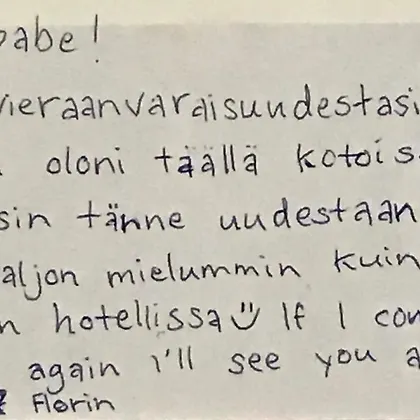 babe!
vieraanvaraisuudestasi
oloni täällä kotois
sin tänne uudestaan
aljon mielummin kuin
n hotellissa If I com
again I'll see you a
Florin